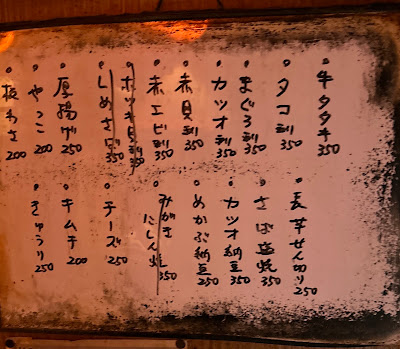 牛タタキ 350
タコ刺 350
まぐろ刺 350
カツオ刺 350
赤貝刺 350
赤エビ刺 350
ホッキ貝刺 350
しめさば 350
厚揚げ 250
やっこ 200
板わさ 200
長芋せん切り 250
さば塩焼 350
カツオ納豆 350
めかぶ納豆 250
みがきにしん焼 350
チーズ 250
キムチ 200
きゅうり 250